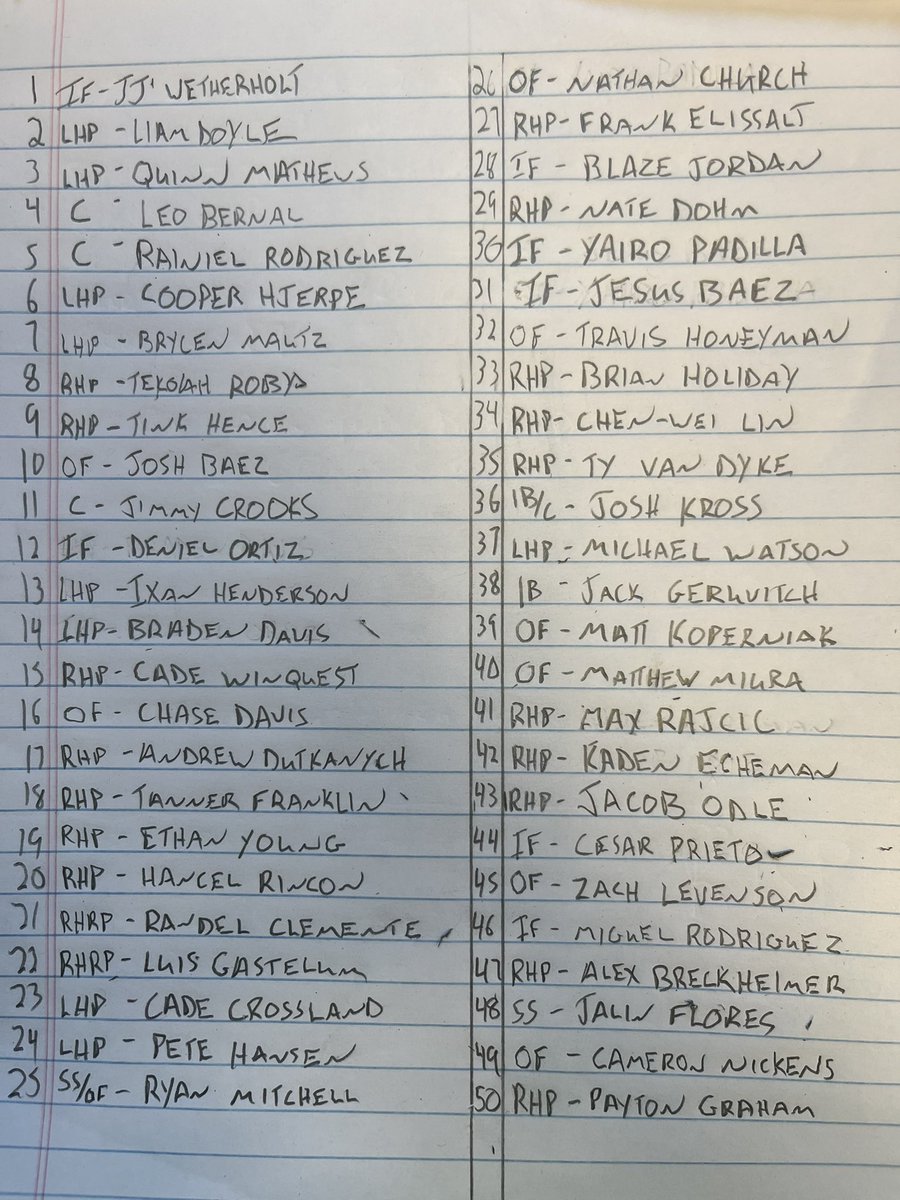 1 IF - JJ WETHERHOLT
2 LHP - LIAM DOYLE
3 LHP - QUINN MATHEWS
4 C - LEO BERNAL
5 C - RAINIEL RODRIGUEZ
6 LHP - COOPER HJERPE
7 LHP - BRYCEN MAUTZ
8 RHP - TEKOAH ROBY
9 RHP - TINK HENCE
10 OF - JOSH BAEZ
11 C - JIMMY CROOKS
12 IF - DENIEL ORTIZ
13 LHP - IXAN HENDERSON
14 LHP - BRADEN DAVIS
15 RHP - CADE WINQUEST
16 OF - CHASE DAVIS
17 RHP - ANDREW DUTKANYCH
18 RHP - TANNER FRANKLIN
19 RHP - ETHAN YOUNG
20 RHP - HANCEL RINCON
21 RHRP - RANDEL CLEMENTE
22 RHRP - LUIS GASTELUM
23 LHP - CADE CROSSLAND
24 LHP - PETE HANSEN
25 SS/OF - RYAN MITCHELL
26 OF - NATHAN CHURCH
27 RHP - FRANK ELISSALT
28 IF - BLAZE JORDAN
29 RHP - NATE DOHM
30 IF - YAIRO PADILLA
31 IF - JESUS BAEZ
32 OF - TRAVIS HONEYMAN
33 RHP - BRIAN HOLIDAY
34 RHP - CHEN-WEI LIN
35 RHP - TY VAN DYKE
36 1B/C - JOSH KROSS
37 LHP - MICHAEL WATSON
38 1B - JACK GERUVITCH
39 OF - MATT KOPERNIAK
40 OF - MATTHEW MIURA
41 RHP - MAX RAJCIC
42 RHP - KADEN ECHEMAN
43 RHP - JACOB ODLE
44 IF - CESAR PRIETO
45 OF - ZACH LEVENSON
46 IF - MIGUEL RODRIGUEZ
47 RHP - ALEX BRECKHEIMER
48 SS - JALIN FLORES
49 OF - CAMERON NICKENS
50 RHP - PAYTON GRAHAM